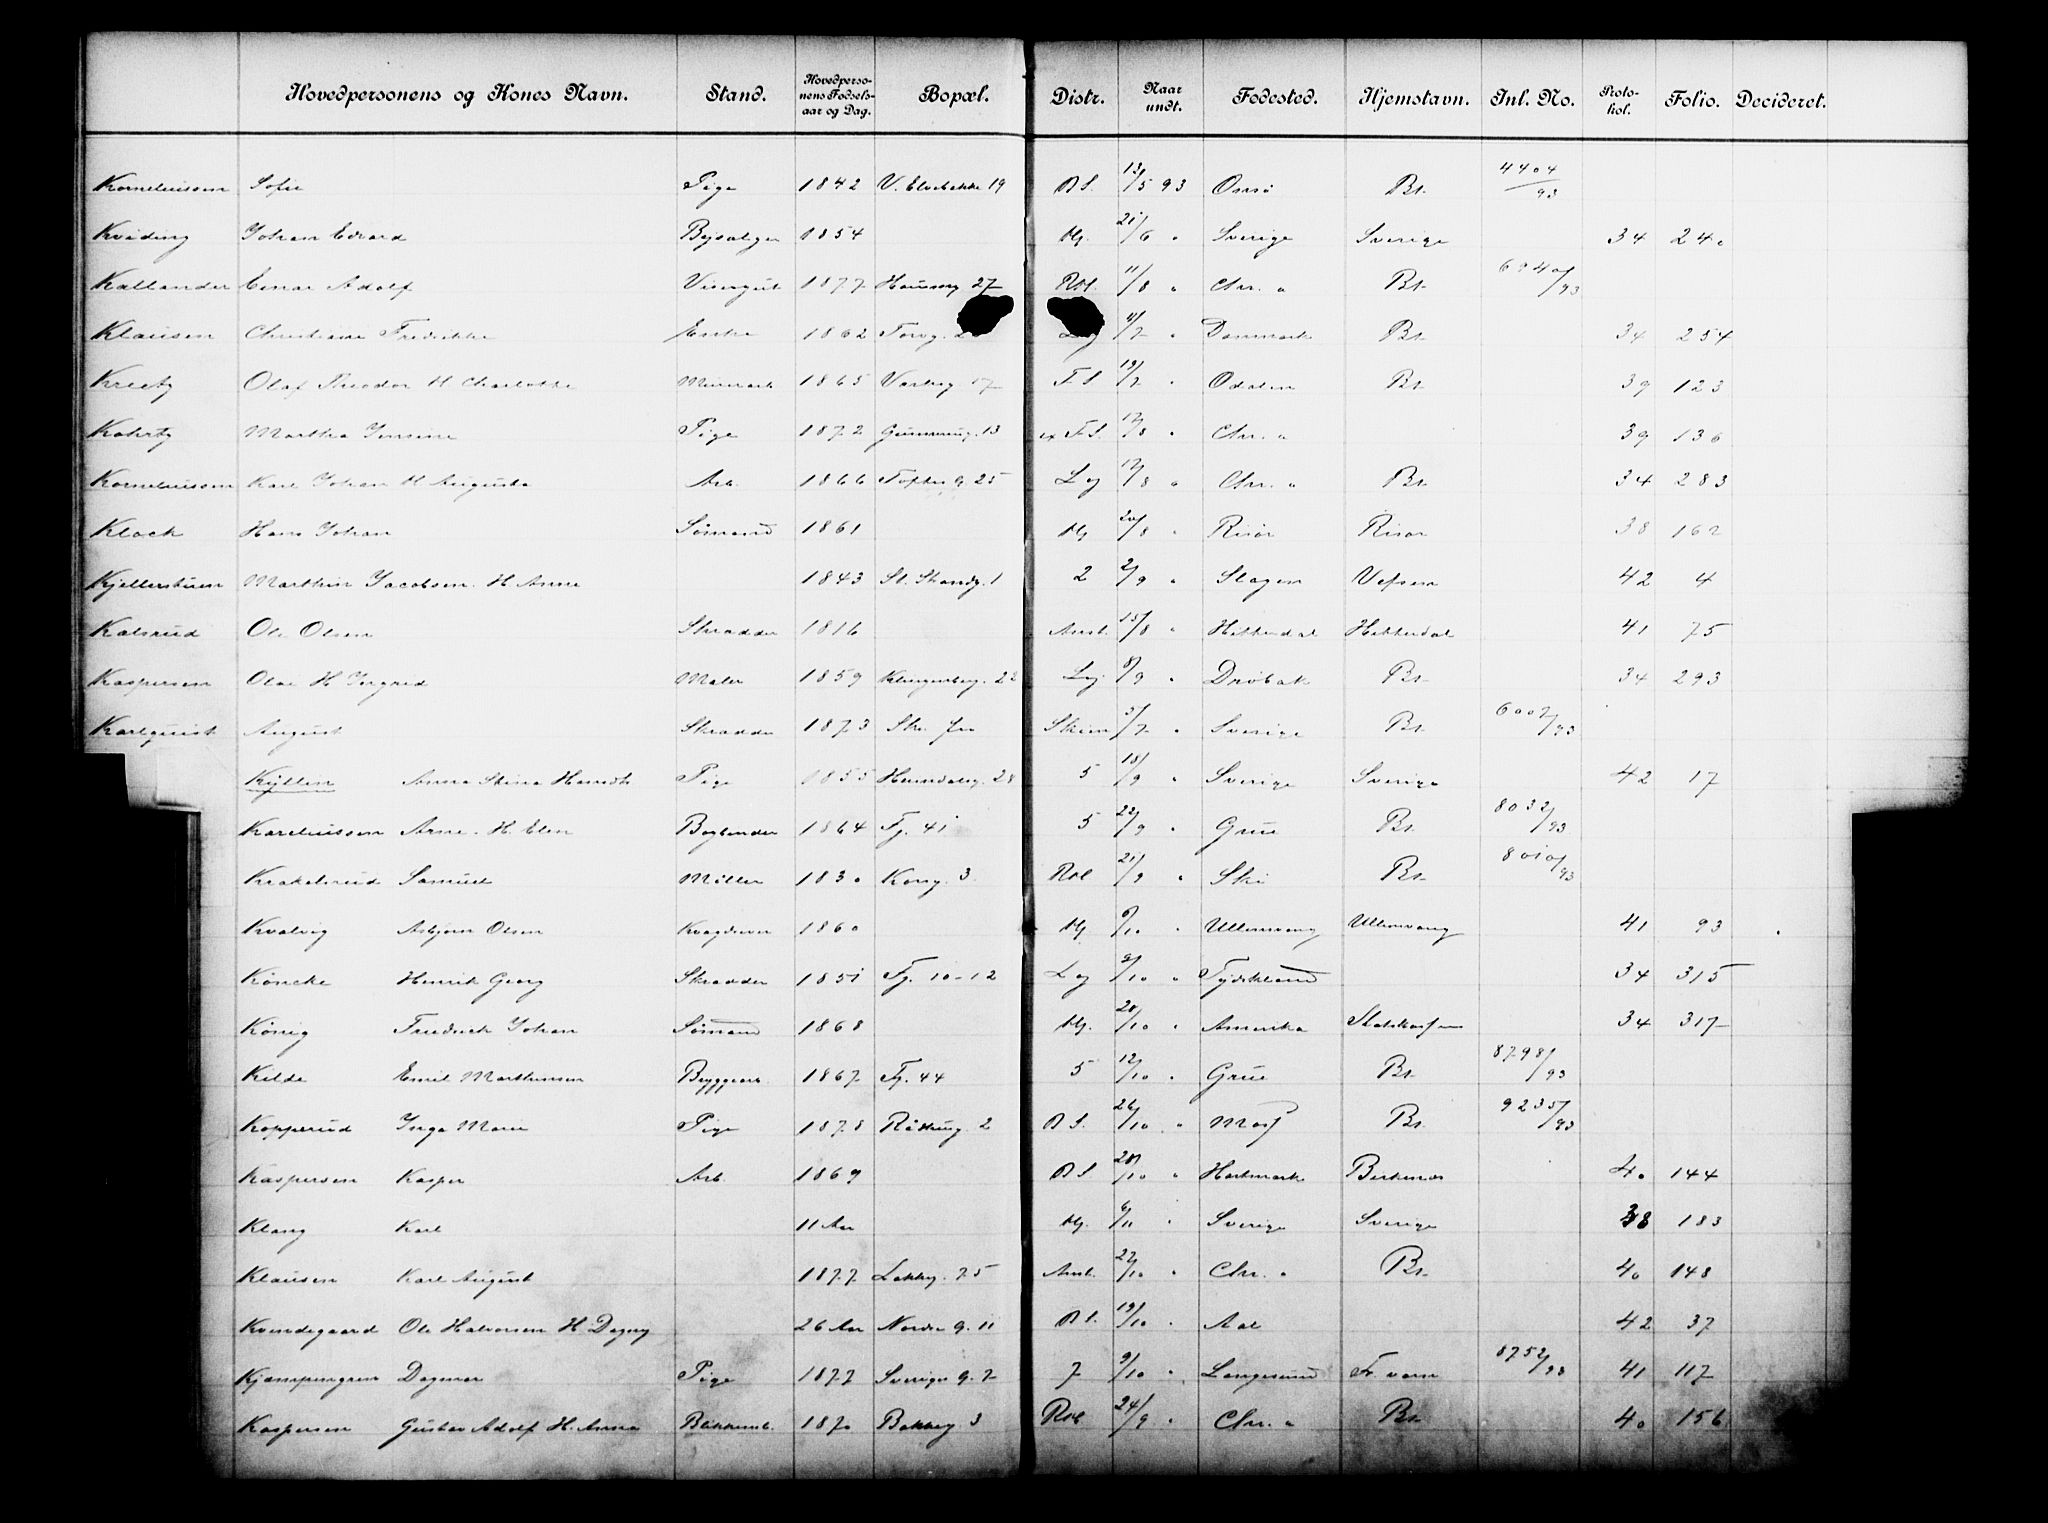 Hovedpersonens og Kones Navn. Stand. Hovedpersonens Fødselsaar og Dag. Bopæl. Distr. Naar undt. Fødested. Hjemstavn. Inl. No. Protokol. Folio. Decideret.
Korneliussen Sofie Pige 1842 V. Elvebakke 19 B S. 13/5 93 Bt. 4404/93
Kvading Johan Edvard 1854 Hj. 21/6 " Sverige Sverige 34 240
Kallander Einar Adolf Visergut 1877 Hausmg 27 Rol. 11/8 " Chr. a Bt. 6940/93
Klausen Christiane Fredrikke Enke 1862 Torvg. 4/7 " Danmark Bt. 34 254
Olaf Theodor H Charlotte Murearb 1865 17 F. S. 19/7 " Odalen Bt. 39 123
Martha Jensine Pige 1872 13 F. S. 17/8 " Chr. a 39 136
Korneliussen Karl Johan H Augusta Arb. 1866 Toftes g. 25 Log 17/8 " Chr. a Bt. 34 283
Klock Hans Johan Sømand 1861 Hj 20/8 " Risør Risør 38 162
Kjellerstuen Marthin Jacobsen. H. Anne 1843 St. Strandg. 1 2 2/9 " Slagen 42 4
Kalsrud Ole Olsen Skrædder 1816 Anst. 15/8 " Hitterdal Hitterdal 41 75
Kaspersen Olai H Ingrid Maler 1859 Klingenberg. 22 Log. 8/9 " Drøbak Bt. 34 293
Karlquist August Skrædder 1873 Skien 3/7 " Sverige Bt. 6007/93
Kyllin Anna Stina Pige 1855 Heimdalsg. 28 5 18/9 " Sverige Sverige 42 17
Kareliussen Arne. H. Elen 1864 Fj. 41 5 22/9 " Grue Bt. 8032/93
Krakelsrud Samuel Møller 1830 Kong. 3 Rol 21/9 " Ski Bt. 8010/93
Kvalvig Asbjørn Olsen Kvægdriver 1860 Hj 9/10 " Ullensvang Ullensvang 41 93
Köncke Henrik Georg Skrædder 1851 Fj. 10-12 Log 9/10 " Tydskland 34 315
König Friedrich Johan Sømand 1868 Hj. 20/10 " Amerika 34 317
Kilde Emil Marthinsen Bryggearb. 1867 Fj. 44 5 12/10 " Grue Bt. 8798/93
Kopperud Inga Marie Pige 1878 2 B S. 26/10 " Moss Bt. 9235/93
Kaspersen Kasper Arb. 1869 B S. 20/10 " Hartmark Birkenæs 40 144
Klang Karl 11 Aar Hj. 6/11 " Sverige Sverige 38 183
Klausen Karl August 1877 Løkkg. 75 Anst. 27/10 " Chr. a Bt. 40 148
Kvindegaard Ole Halvorsen H. Dagny 26 Aar Nordre g. 11 B S. 19/10 " Aal 42 37
Kjæmpengren Dagmar Pige 1877 Sveriges g. 7 7 9/10 " Langesund Fr. værn 8752/93 41 117
Kaspersen Gustav Adolf H. Anna Blikkensl. 1870 Bakkeg 3 Rol 24/9 " Chr. a Bt. 40 156